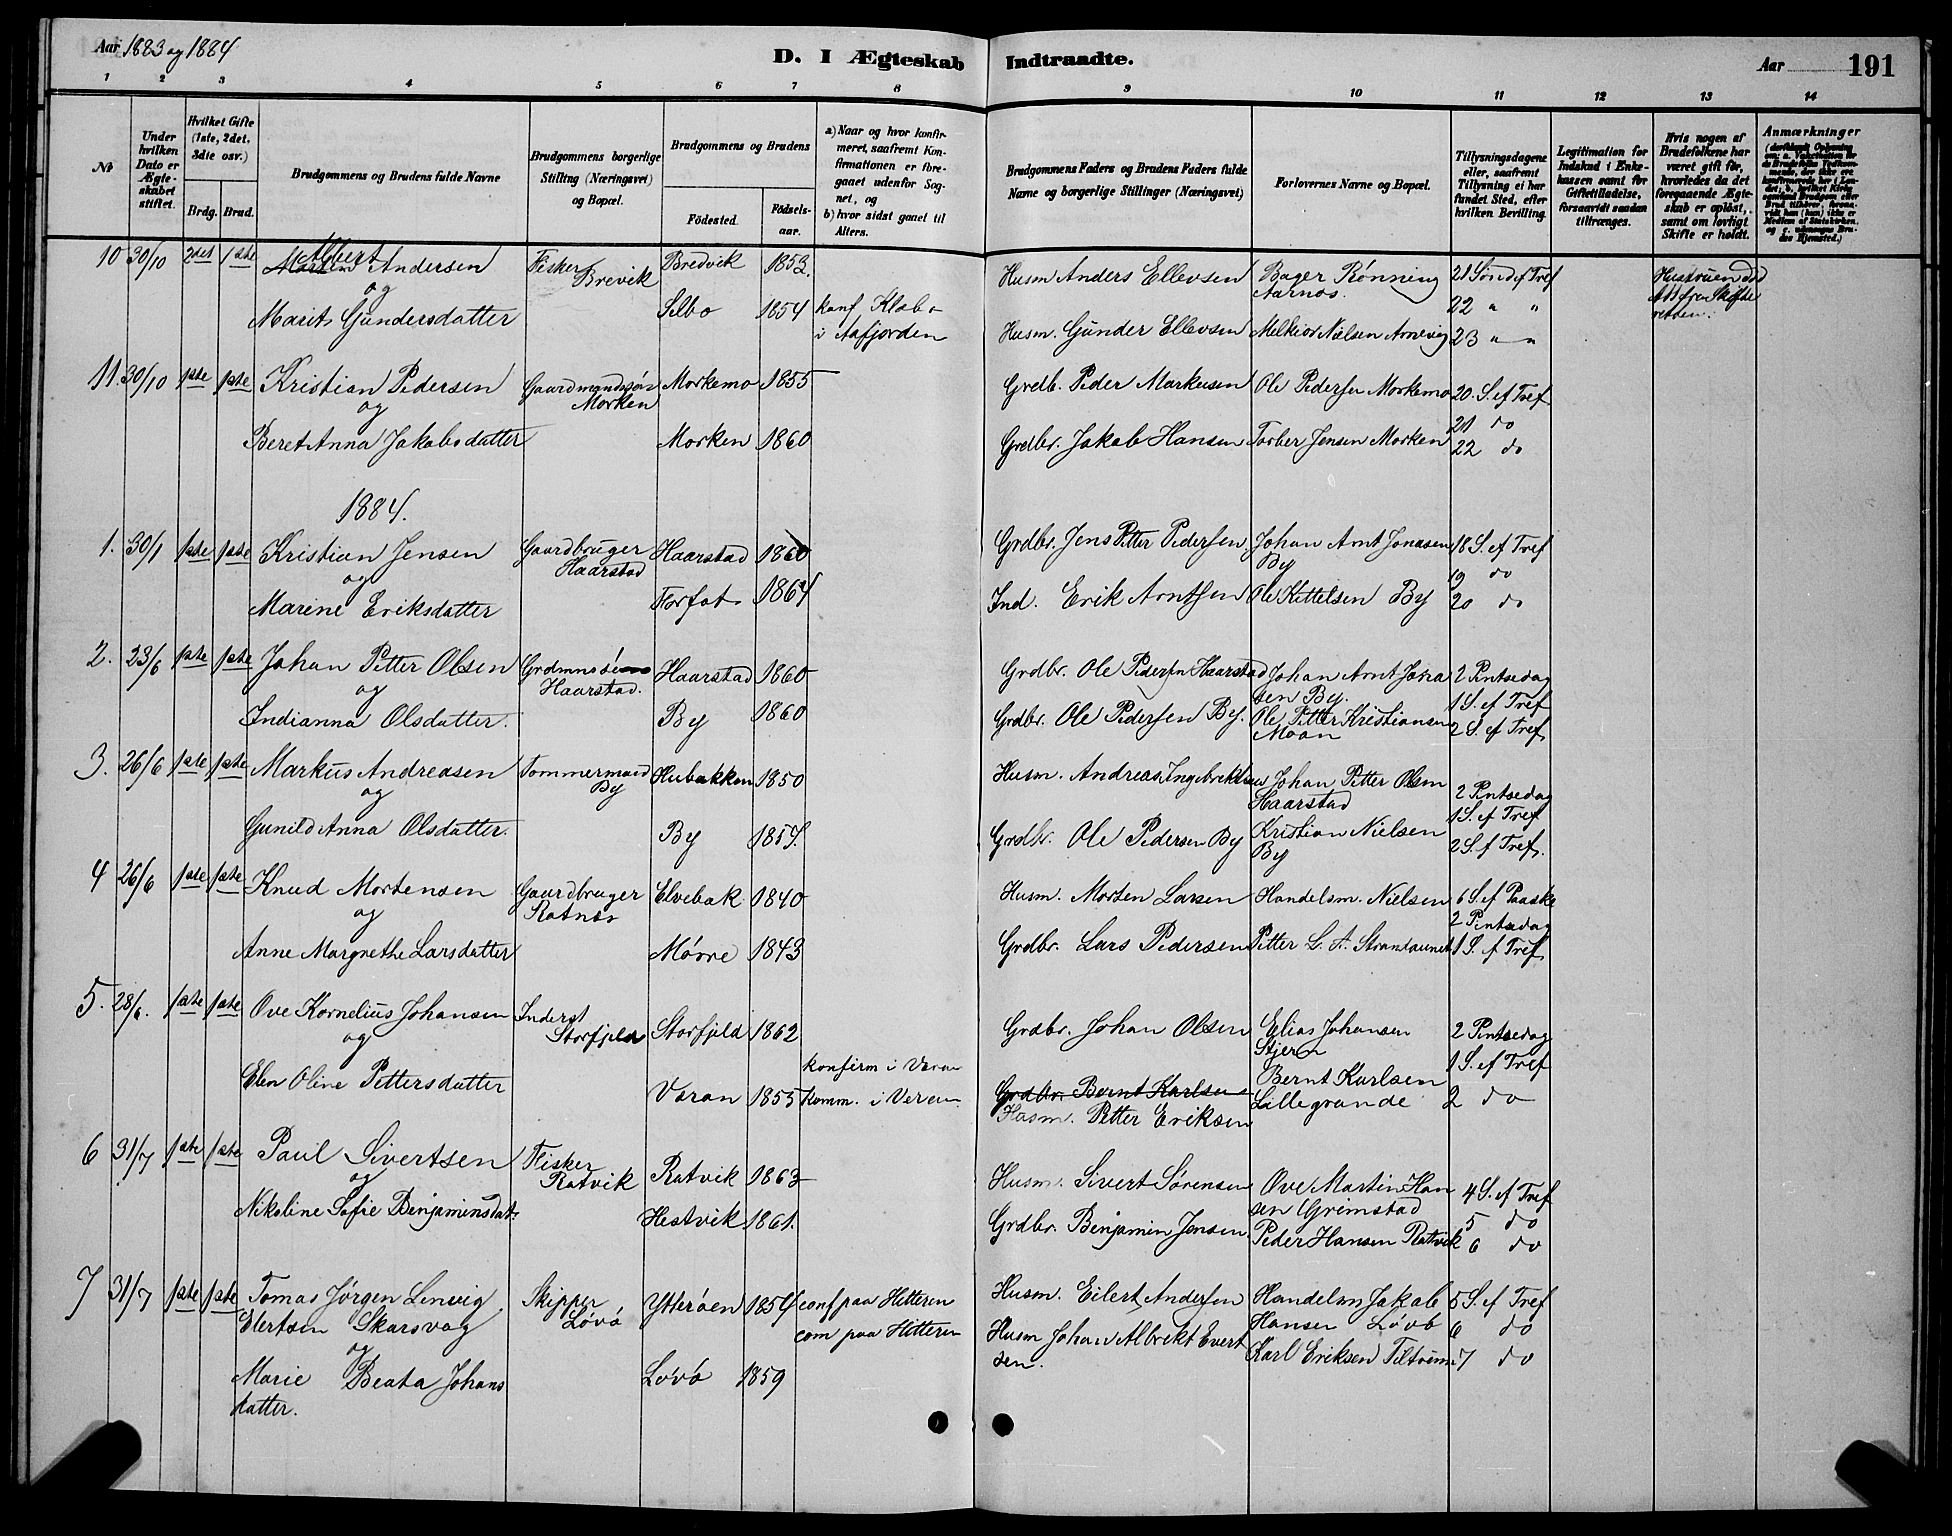 Aar 1883 og 1884
D. I Ægteskab Indtraadte.
Aar 191
1 2 3 4 5 6 7 8 9 10 11 12 13 14
No
Under hvilken Dato er Ægte-skabet stiftet.
Hvilket Gifte (1ste, 2det, 3die osv.)
Brdg. Brud.
Brudgommens og Brudens fulde Navne
Brudgommens borgerlige Stilling (Næringsvei) og Bopæl.
Brudgommens og Brudens
Fødested. Fødsels-aar.
a) Naar og hvor konfir-meret, saafremt Kon-firmationen er fore-gaaet udenfor Sog-net, og
b) hvor sidst gaaet til Alters.
Brudgommens Faders og Brudens Faders fulde Navne og borgerlige Stillinger (Næringsvei)
Forlovernes Navne og Bopæl.
Tillysningsdagene eller, saafremt Tillysning ei har fundet Sted, efter hvilken Bevilling.
Legitimation for Indskud i Enke-kassen samt for Giftetilladelse, forsaavidt saadan tiltrænges.
Hvis nogen af Brudefolkene har været gift før, hvorledes da det foregaaende Ægte-skab er opløst, samt om lovligt Skifte er holdt.
Anmærkninger
10 30/10 2det 1ste Albert Andersen Fisker Brevik Bredvik 1852. Husm Anders Ellevsen Bager Rønning Aarnos. 21 Sønd ef Tref
og
Marit Gundersdatter Selbo 1854 konf Klæbo i Aafjorden Husm. Gunder Ellevsen Melkior Nielsen Arnevig 22 " " 23 " "
11 30/10 1ste 1ste Kristian Pedersen Gaardmandssøn Morken Morkemo 1855 Grdb. Peder Markusen Ole Pedersen Morkemo 20. S. ef Tref
og 21 do
Beret Anna Jakobsdatter Morken 1860 Grdbr. Jakob Hansen Torber Jensen Morken 22 do
1884.
1. 30/1 1ste 1ste Kristian Jensen Gaardbruger Haarstad Haarstad 1860 Grdbr. Jens Petter Pedersen Johan Arnt Jonasen By 18 S. ef Tref
og 19 do
Marine Eriksdatter Forfot 1864 Ind. Erik Arntsen Ole Kittelsen By 20 do
2. 23/6 1ste 1ste Johan Petter Olsen Haarstad. Haarstad 1860 Grdbr. Ole Pedersen Haarstad Johan Arnt Jonasen By. 2 Pintsedag
og 1 S. ef Tref
Indianna Olsdatter. By 1860 Grdbr. Ole Pedersen By. Ole Petter Kristiansen Moan 2 S. ef Tref
3. 26/6 1ste 1ste Markus Andreasen Tømmermand By Hubakken 1850 Husm. Andreas Ingebrektsen Johan Petter Olsen Haarstad 2 Pintsedag
og 1 S. ef Tref
Gunild Anna Olsdatter. By 1854. Grdbr. Ole Pedersen By Kristian Nielsen By 2 S. f Tref.
4 26/6 1ste 1ste Knud Mortensen Gaardbruger Ratnes Elvebak 1840 Husm. Morten Larsen Handelsm. Nielsen 6 S. ef Paaske
og 2 Pintsedag
Anne Margrethe Larsdatter Mørre 1843 Grdbr. Lars Pedersen Petter L. A. Strandaunet 1 S. ef Tref
5. 28/6. 1ste 1ste Ove Kornelius Johansen Inderst Storfjeld Storfjeld 1862 Grdbr. Johan Olsen Elias Johansen Stjern 2 Pintsedag
og 1 S. ef Tref
Elen Oline Pettersdatter Varan 1855 konfirm i Veran Komm. i Veran Grdbr. Bernt Karlsen Husm. Petter Eriksen Bernt Karlsen Lillegrande 2 do
6 31/7 1ste 1ste Paul Sivertsen Fisker Ratvik Ratvik 1863 Husm. Sivert Sørensen Ove Martin Hansen Gremstad 4 S. ef Tref
og 5 do
Nikoline Sofie Benjaminsdat. Hestvik 1861. Grdbr. Benjamin Jensen. Peder Hansen Ratvik 6 do
7 31/7 1ste 1ste Tomas Jørgen Lenvig Skipper Løvø Ytterøen 1854 conf paa Hitteren Husm. Eilert Andersen Handelsm Jakob Hansen Løvø 5 S. ef Tref
Elertsen Skarsvog com paa Hitteren 6 do
og Husm Johan Albrekt Evertsen. Karl Eriksen Tiltrem 7 do
Marie Beata Johansdatter. Løvø 1859